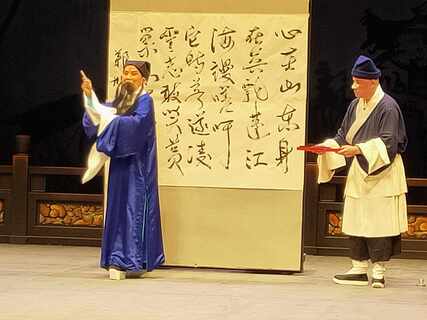 心在山东身
在吴飘蓬江
海漫嗟吁
它时若遂凌
云志敢笑黄
巢
郓